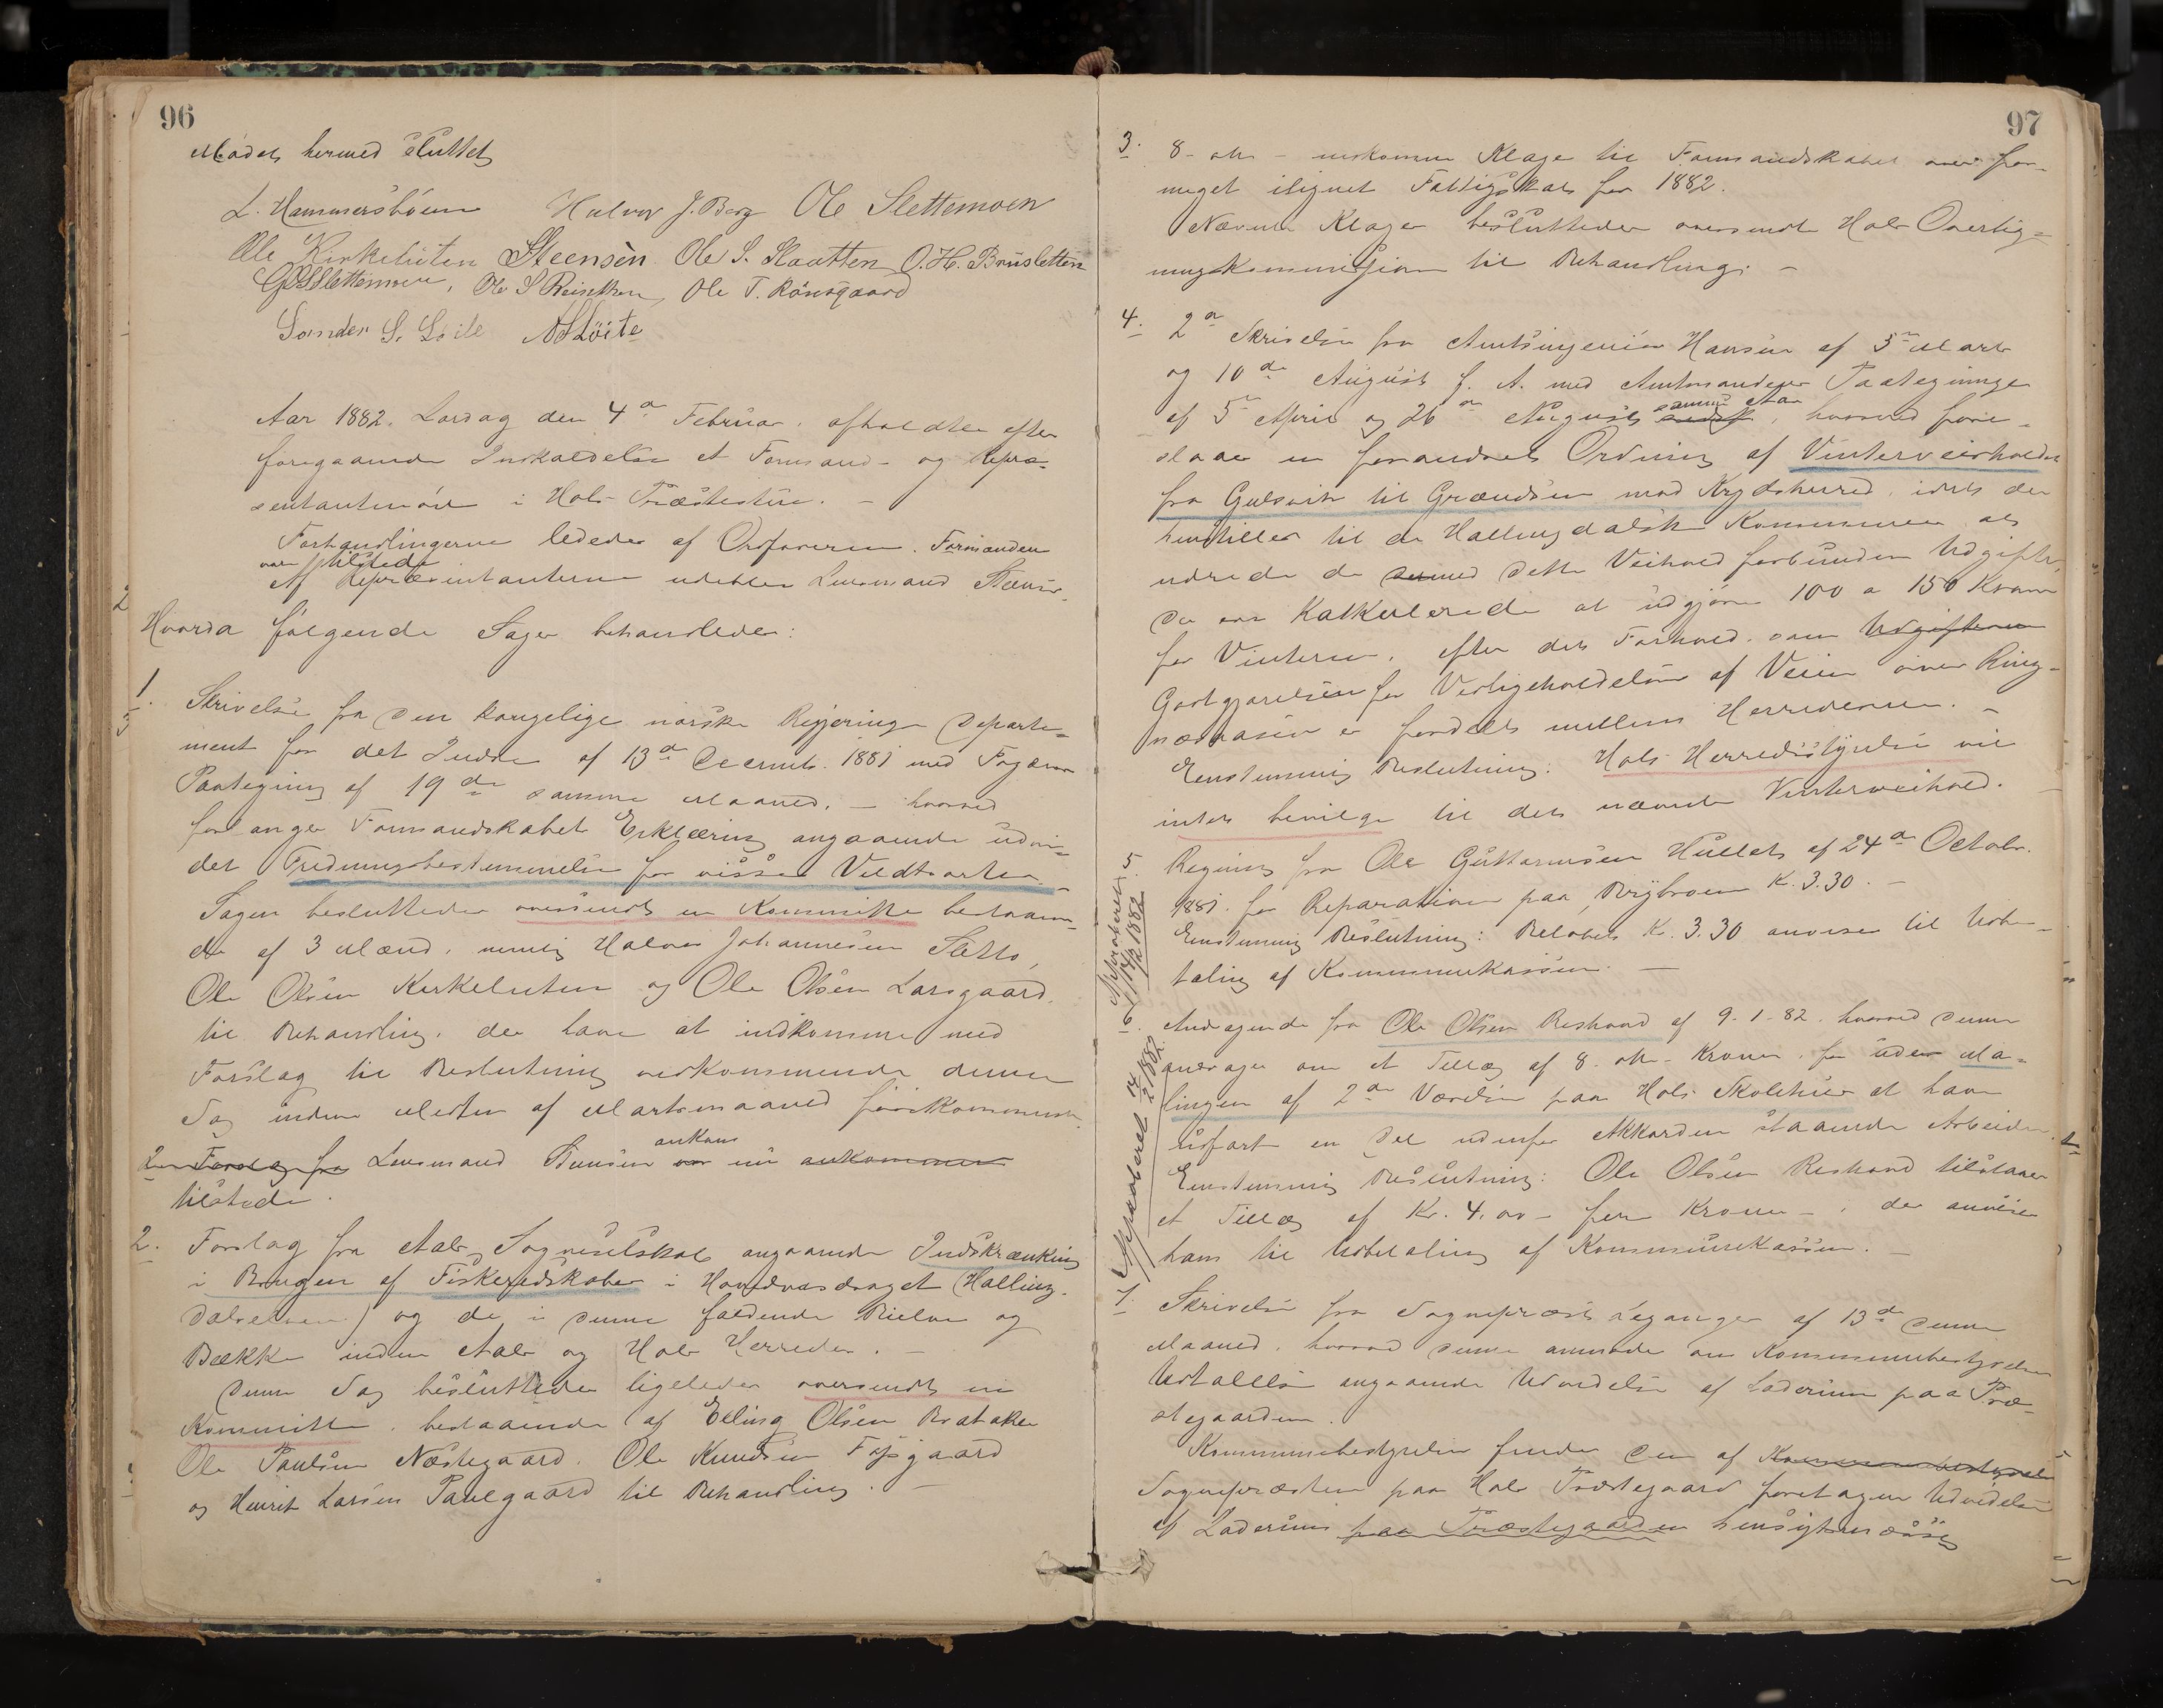 96
Mødet hermed sluttet
L. Hammersbøen Halvor J. Berg Ole Slettemoen
Ole Kirkeluten Steensen Ole S. Slaatten O. H. Brusletten
Ole S Ole T. Rønsgaard
Sander S. A Løite
Aar 1882. Lørdag den 4de Februar. afholdtes efter
foregaaende Indkaldelse et Formand- og Repræ-
sentantmøde i Hols Præstestue. –
Forhandlingerne lededes af Ordføreren. Formænden
var tilstede
Af Repræsentanterne udeblev Lensmand Steensen.
Hvorda følgende Sager behandledes:
1. Skrivelse fra den kongelige norske Regjerings Departe-
ment for det Indre af 13de Decemb. 1881 med Fogdens
Paategning af 19de samme Maaned. – hvorved
forlanges Formandskabets Erklæring angaaende udvi-
det Fredningsbestemmelse for visse Vildtarter. –
Sagen besluttedes oversendt en Kommitte bestaaen-
de af 3 Mænd. nemlig Halvor Johannesen Sletto,
Ole Olsen Kirkeluten og Ole Olsen Larsgaard.
til Behandling. der have at indkomme med
Forslag til Beslutning vedkommende denne
Sag inden Midten af Martsmaaned førstkommende.
2. Forslag fra Lensmand Steensen var nu ankom ankommen
tilstede.
2. Forslag fra Aals Sogneselskab angaaende Indskrænkning
i Brugen af Fiskeredskaber i Hovedvasdraget (Halling-
dalselven) og de i denne faldende Bielve og
Bække inden Aals og Hols Herreder. –
Denne Sag besluttedes ligeledes oversendt en
Kommitte. bestaaende af Elling Olsen Brataker
Ole Paulsen Næstegaard. Ole Knudsen
og Henrik Larsen Paulgaard til Behandling. –
97
3. 8 – otte – indkomne Klager til Formandskabet over for-
meget ilignet Fattigskat for 1882.
Nævnte Klager besluttedes oversendt Hols Overlig-
ningskommission til Behandling. –
4. 2de Skrivelser fra Amtsingeniør Hansen af 5te Marts
og 10de August f. A. med Amtmandens Paategninger
af 5te April og 26de August samme Aar sidst, hvorved fore-
slaaes en forandret Ordning af Vinterveiholdet
fra Gulsvik til Grændsen mod Krydsherred. idet der
henstilles til de Hallingdalske Kommuner at
udrede de dermed dette Veihold forbundne Udgifter,
der var kalkulerede at udgjøre 100 a 150 Kroner
for Vinteren. efter det Forhold. som Udgifterne
Godtgjørelsen for Vedligeholdelsen af Veien over Ring-
nesaasen er fordelt mellem Herrederne. –
Eenstemmig Beslutning: Hols Herredsstyrelse vil
intet bevilge til det nævnte Vinterveihold. –
5. Regning fra Ole Guttormsen Hullet af 24de Octobr.
1881. for Reparation paa Brybroen K. 3.30. –
Eenstemmig Beslutning: Beløbet Kr. 3.30 anvises til Udbe-
taling af Kommunekassen. –
Attesteret 14/2 1882
6. Andragende fra Ole Olsen Reshovd af 9-1-82. hvorved denne
andrager om et Tillæg af 8. otte – Kroner. for uden Ma-
lingen af 2de Værelser paa Hols Skolehus at have
udført en Del udenfor Akkorden staaende Arbeider.
Eenstemmig Beslutning: Ole Olsen Reshovd tilstaaes
et Tillæg af Kr. 4,00 – fire Kroner –, der anvises
ham til Udbetaling af Kommunekassen. –
14/2 1882
7. Skrivelse fra Sognepræst af 13de denne
Maaned. hvorved denne anmoder om Kommunebestyrelsens
Udtalelse angaaende Udvidelse af Laderum paa Præ-
stegaarden.
Kommunebestyrelsen finder den af Kommunebestyrelsen
Sognepræsten paa Hols Præstegaard foretagne Udvidelse
af Laderum paa Præstegaarden hensigtsmæssig